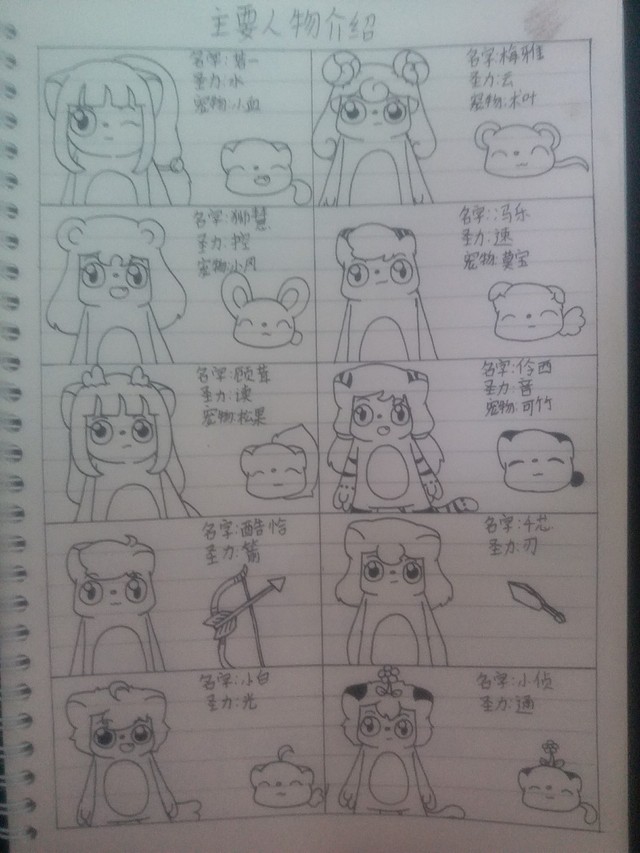 主要人物介绍
名字:梦一
圣力:水
宠物:小血
名字:梅雅
圣力:云
宠物:术叶
名字:狮慧
圣力:控
宠物:小风
名字:冯乐
圣力:速
宠物:莫宝
名字:顾茸
圣力:读
宠物:松果
名字:伶西
圣力:音
宠物:可竹
名字:酷恰
圣力:箭
名字:千芯
圣力:刃
名字:小白
圣力:光
名字:小侦
圣力:通